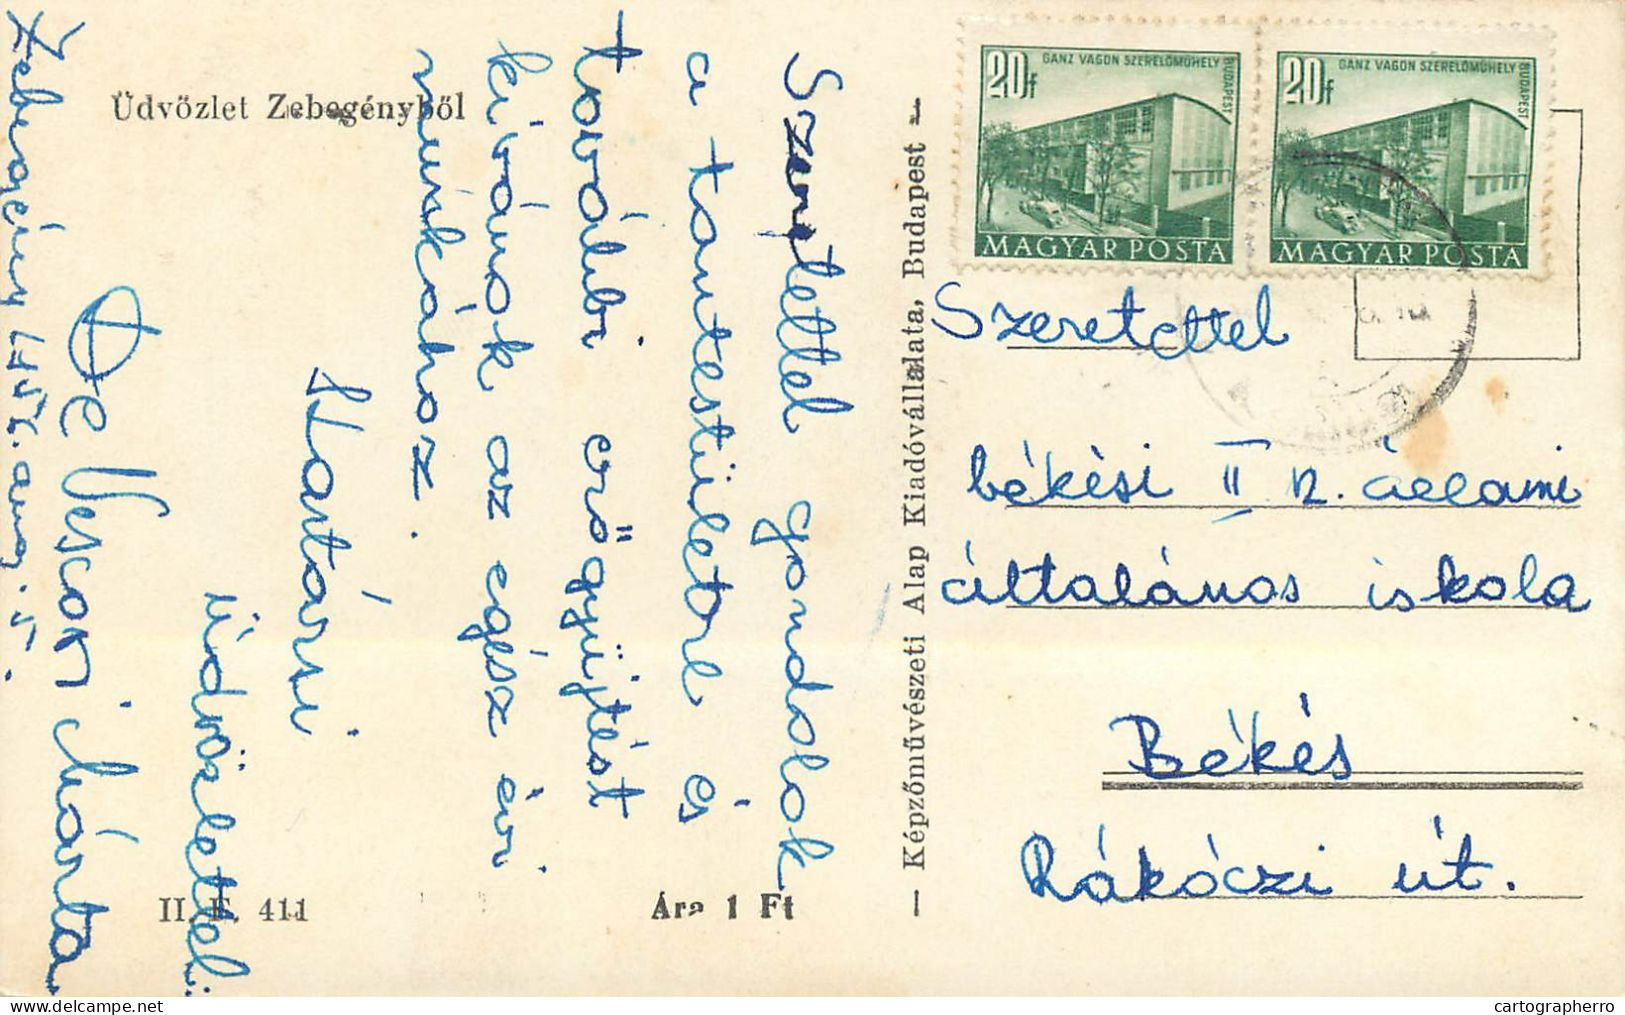 Üdvözlet Zebegényből
Zebegény 1956. aug. 5.
Szeretettel gondolok
a tantestületre és
további erőgyűjtést
kívánok az egész évi
munkához.
Hartársi
üdvözlettel:
De Vescovi Márta
II. F. 411
Ára 1 Ft
— Képzőművészeti Alap Kiadóvállalata, Budapest —
20f
GANZ VAGON SZERELŐMŰHELY
BUDAPEST
MAGYAR POSTA
20f
GANZ VAGON SZERELŐMŰHELY
BUDAPEST
MAGYAR POSTA
Szeretettel
békési II. sz. állami
általános iskola
Békés
Rákóczi út.
cartographerro